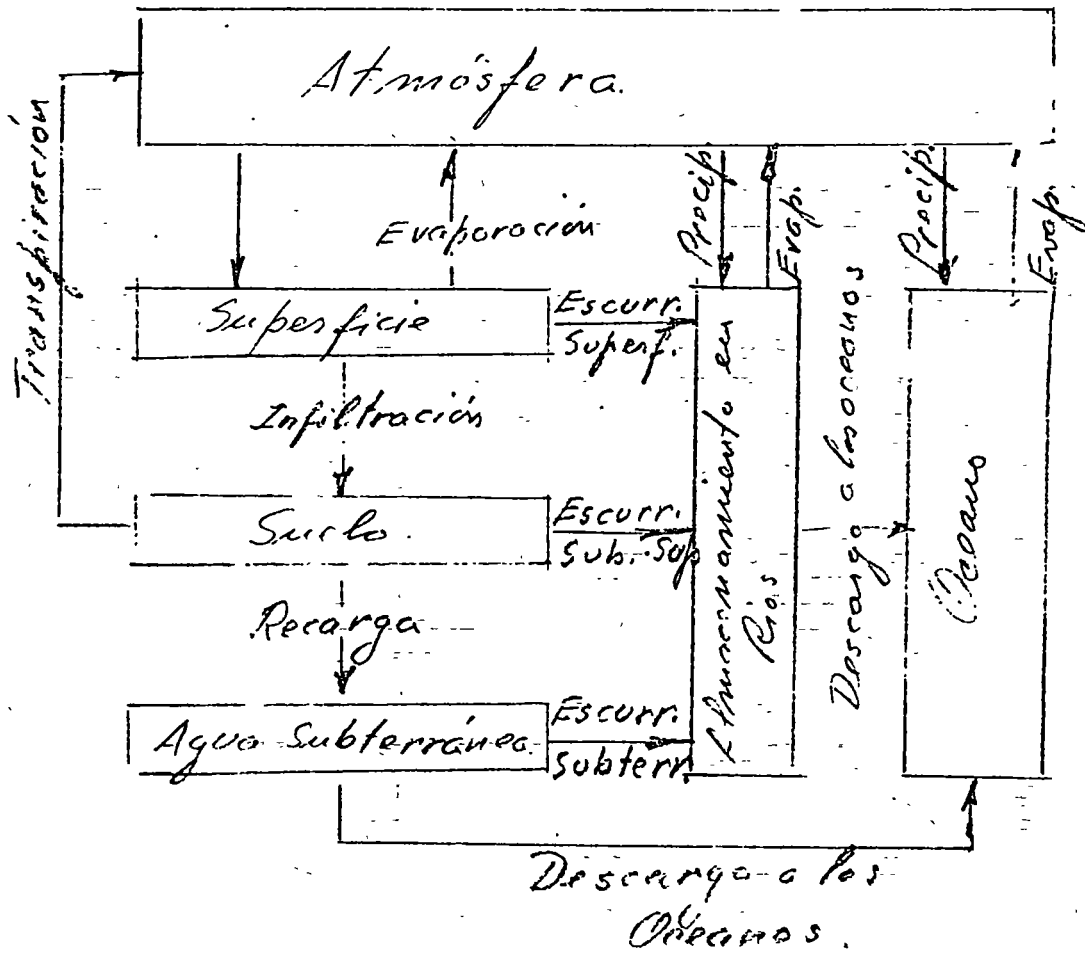 Atmósfera.
Transpiración
Evaporación
Precip.
Evap.
Precip.
Evap.
Superficie
Escurr.
Superf.
Infiltración
Suelo.
Escurr.
Sub. Sup
Recarga
Agua Subterránea
Escurr.
Subterr.
Almacenamiento en
Ríos
Descarga a los oceanos
Océano
Descarga a los
Océanos.